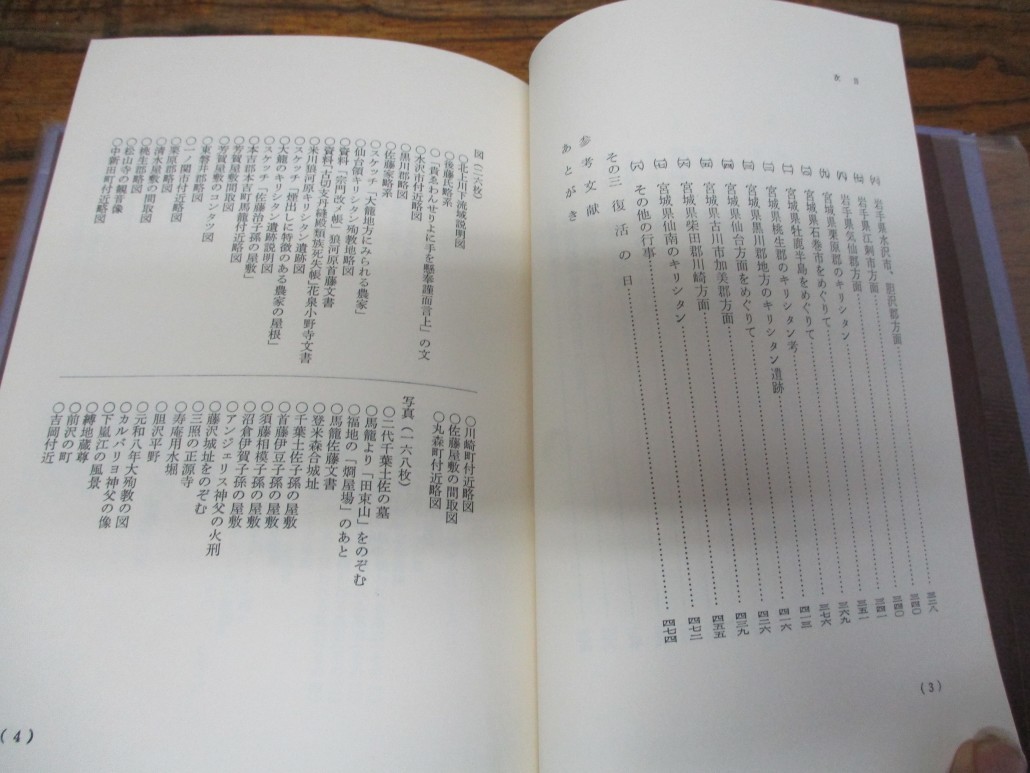 目次
岩手県水沢市、胆沢郡方面……三二八
岩手県江刺市方面……三四〇
岩手県気仙郡方面……三四一
宮城県栗原郡のキリシタン……三五一
宮城県石巻市をめぐりて……三六九
宮城県牡鹿半島をめぐりて……三七六
宮城県桃生郡のキリシタン考……四一三
宮城県黒川郡地方のキリシタン遺跡……四一六
宮城県仙台方面をめぐりて……四二六
宮城県古川市加美郡方面……四三九
宮城県柴田郡川崎方面……四五五
宮城県仙南のキリシタン……四七二
その他の行事……四七四
その三 復活の日
参考文献
あとがき
(3)
図(二六枚)
〇北上川下流域説明図
〇後藤家略系
〇「貴きわんせりよに手を懸奉謹而言上」の文
〇水沢付近略図
〇黒川郡略図
〇佐藤家略系
〇スケッチ「大籠地方にみられる農家」
〇仙台領キリシタン殉教地略図
〇資料「宗門改メ帳」狼河原首藤文書
〇資料「古切支丹縁段類族死失帳」花泉小野寺文書
〇米川狼河原キリシタン遺跡図
〇スケッチ「煙出しに特徴のある農家の屋根」
〇大籠のキリシタン遺跡説明図
〇スケッチ「佐藤治子孫の屋敷」
〇本吉郡本吉町馬籠付近略図
〇芳賀屋敷間取図
〇芳賀屋敷のコンタツ図
〇東磐井郡略図
〇一ノ関古付近略図
〇栗原郡略図
〇清水屋敷の間取図
〇桃生郡略図
〇松山寺の観音像
〇中新田町付近略図
〇川崎町付近略図
〇佐藤屋敷の間取図
〇丸森町付近略図
写真(一六八枚)
〇二代千葉土佐の墓
〇馬籠より「田束山」をのぞむ
〇福地の「烱屋場」のあと
〇馬籠佐藤文書
〇登米森合城址
〇千葉土佐子孫の屋敷
〇首藤伊豆子孫の屋敷
〇須藤相模子孫の屋敷
〇沼倉伊賀子孫の屋敷
〇アンジェリス神父の火刑
〇藤沢城址をのぞむ
〇三照の正源寺
〇寿庵用水堀
〇胆沢平野
〇元和八年大殉教の図
〇カルバリヨ神父の像
〇下嵐江の風景
〇縛地蔵尊
〇前沢の町
〇吉岡付近
(4)